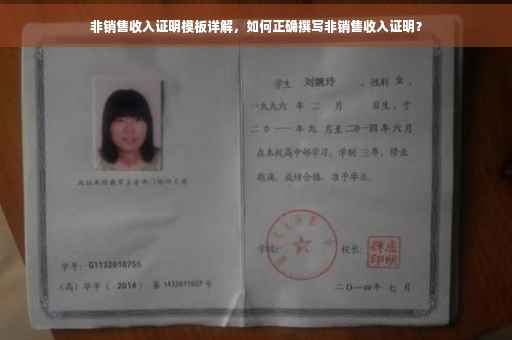 非销售收入证明模板详解，如何正确撰写非销售收入证明？
学生 刘婉玲 ，性别 女 ，
一九九六 年 二 月 日生，于
二〇一一年九 月至二〇一四年六月
在本校高中部学习，学制 三年，修业
期满，成绩合格，准予毕业。
学校：
校长：
学号：G1132010755
（高）毕字（ 2014 ）第 1432011027 号
二〇一四年 七 月